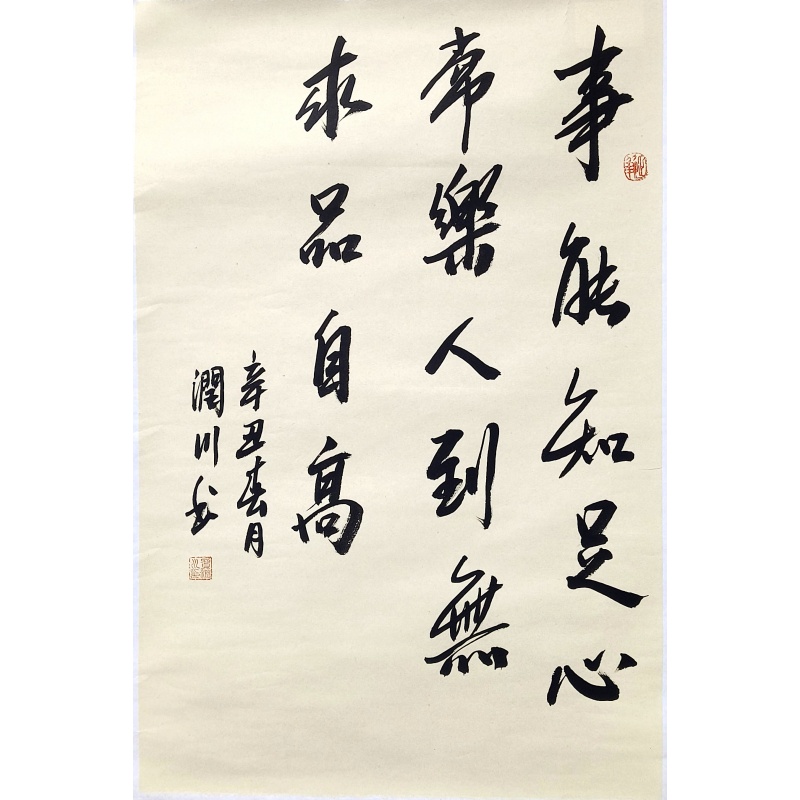 事能知足心
常樂人到無
求品自高
辛丑春月
潤川书